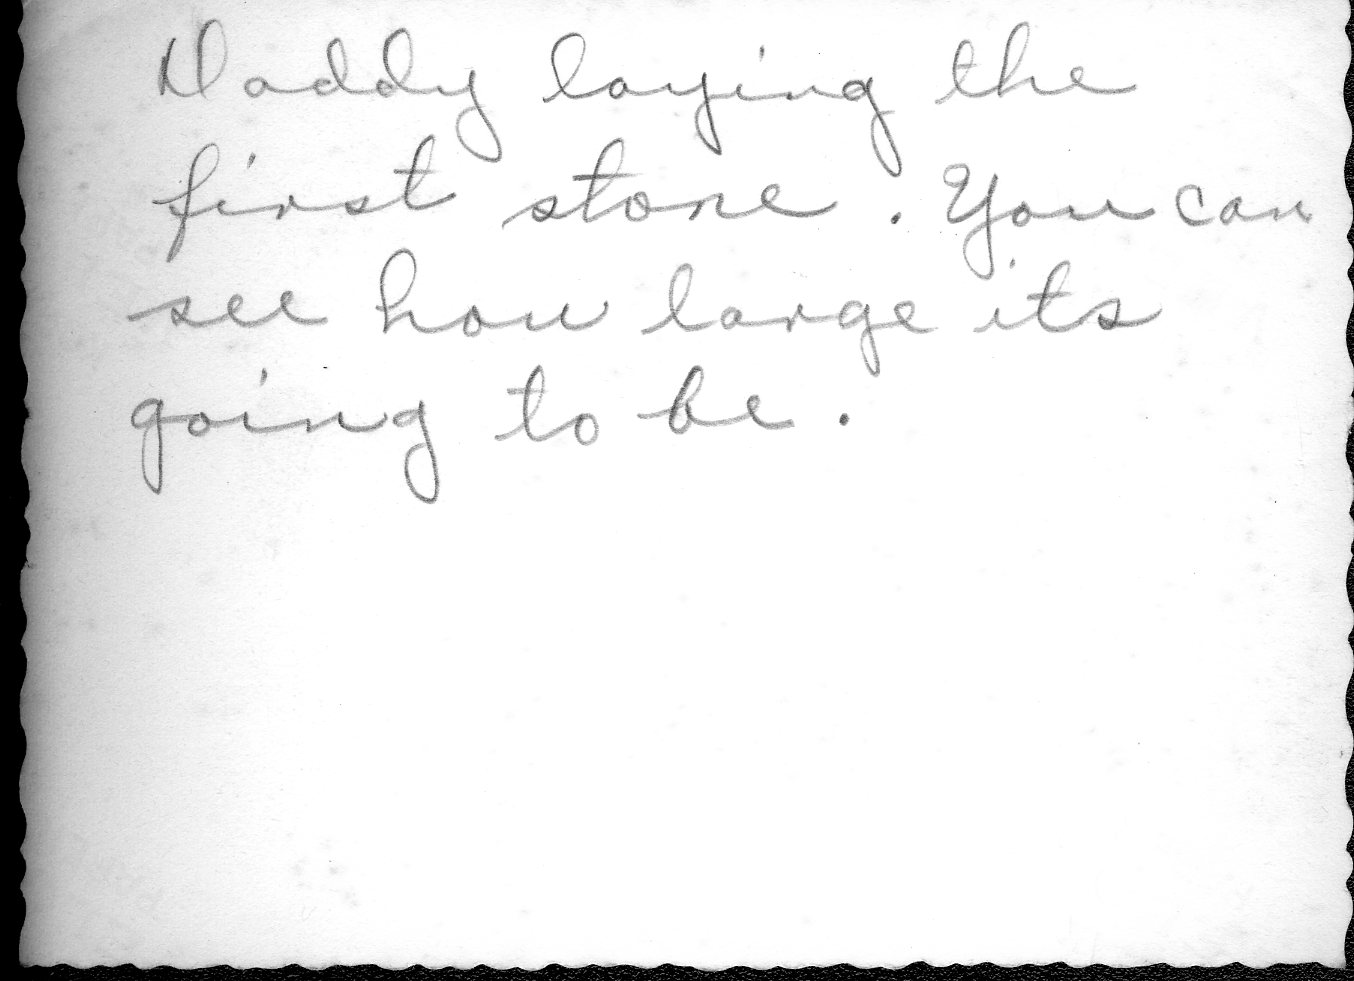 Daddy laying the
first stone. You can
see how large its
going to be.